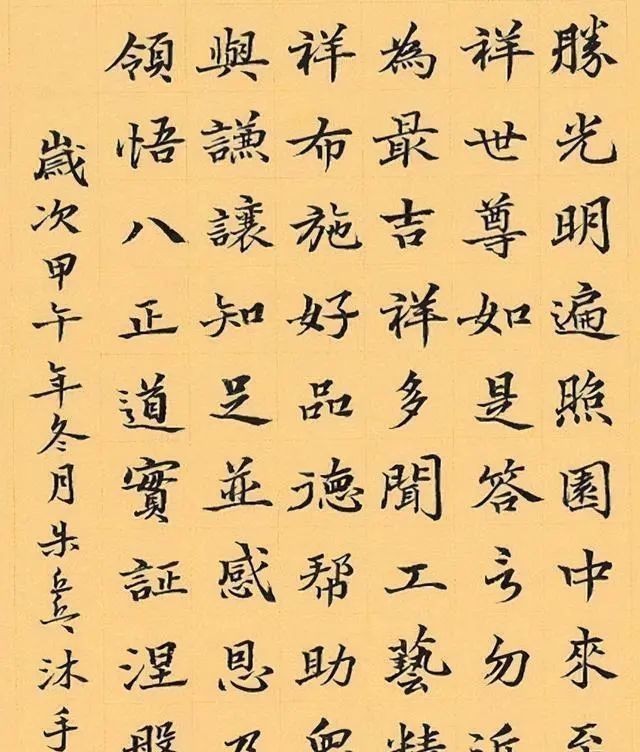 勝光明遍照園中來至
祥世尊如是答言勿近
為最吉祥多聞工藝精
祥布施好品德帮助眾
與謙讓知足並感恩及
領悟八正道實証涅
歲次甲午年冬月朱沐手